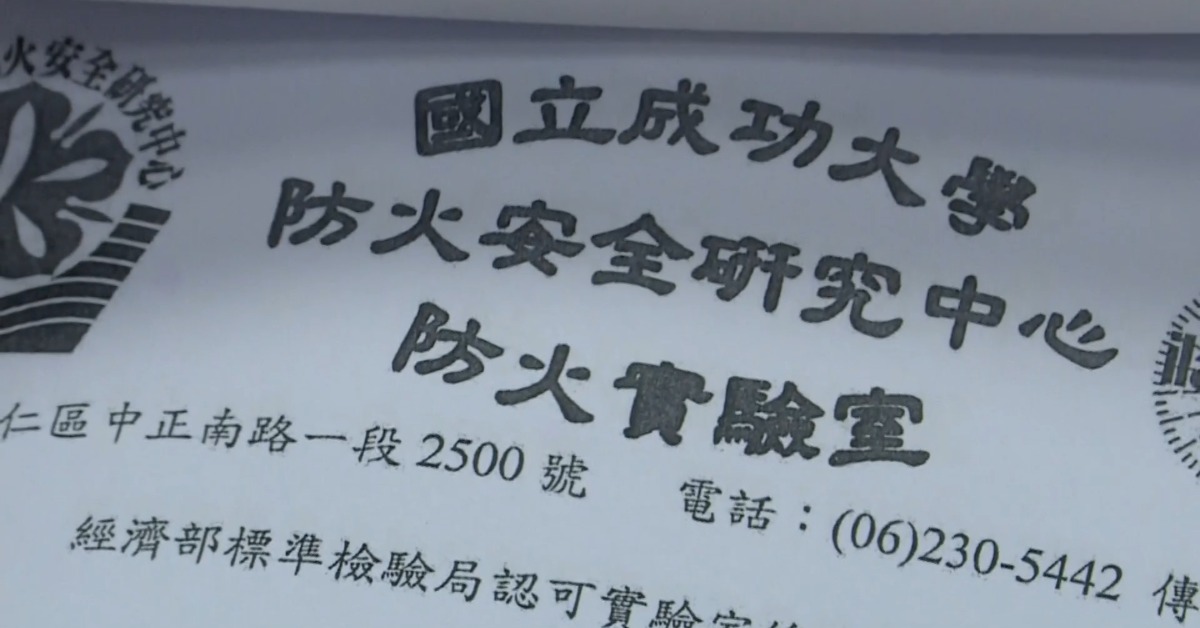 火安全研究中心
國立成功大學
防火安全研究中心
防火實驗室
仁區中正南路一段 2500 號 電話：(06)230-5442 傳
經濟部標準檢驗局認可實驗室